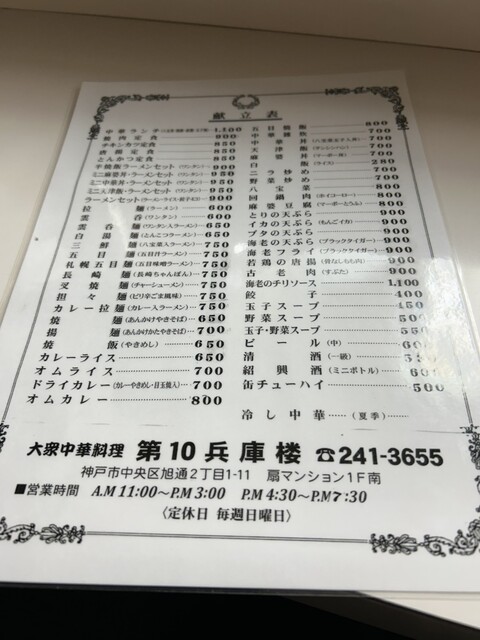 献立表
中華ランチ 1,100
焼肉定食 900
チキンカツ定食 850
唐揚定食 850
とんかつ定食 850
半焼飯ラーメンセット(ワンタン) 900
ミニ麻婆丼・ラーメンセット(ワンタン) 950
ミニ中華丼・ラーメンセット(ワンタン) 950
ミニ天津飯・ラーメンセット(ワンタン) 950
ラーメンセット(ラーメン・ライス・餃子4コ) 900
拉麺(ラーメン) 600
雲呑(ワンタン) 600
雲呑麺(ワンタンスラーメン) 650
白湯麺(とんこつラーメン) 650
三鮮麺(八宝菜入ラーメン) 750
五目麺(五目汁ラーメン) 750
札幌五目麺(五目味噌ラーメン) 750
長崎麺(長崎ちゃんぽん) 750
叉焼麺(チャーシューメン) 750
担々麺(ピリ辛ごま風味) 750
カレー拉麺(カレー入スラーメン) 750
焼麺(あんかけやきそば) 650
揚麺(あんかけかたやきそば) 700
焼飯(やきめし) 650
カレーライス 650
オムライス 700
ドライカレー(カレーやきめし・目玉焼入) 700
オムカレー 800
五目焼飯 800
中華雑炊 700
中華丼(八宝菜玉子入丼) 700
天津飯(テンシンハン) 700
麻婆丼(マーボー丼) 700
白飯(ライス) 280
ニラ炒め 700
野菜炒め 700
八宝菜 800
回鍋肉(ホイコーロー) 800
麻婆豆腐(マーボーとうふ) 800
とりの天ぷら 900
イカの天ぷら(もんごイカ) 900
ブタの天ぷら 900
海老の天ぷら(ブラックタイガー) 900
海老フライ(ブラックタイガー) 900
若鶏の唐揚(骨なしもも肉) 900
古老肉(すぶた) 900
海老のチリソース 1,100
餃子 400
玉子スープ 450
野菜スープ 500
玉子・野菜スープ 550
ビール(中)
清酒(一級)
紹興酒(ミニボトル)
缶チューハイ 500
冷し中華(夏季)
大衆中華料理 第10兵庫楼 ☎241-3655
神戸市中央区旭通2丁目1-11 扇マンション1F南
■営業時間 A.M 11:00〜P.M 3:00 P.M 4:30〜P.M 7:30
〈定休日 毎週日曜日〉